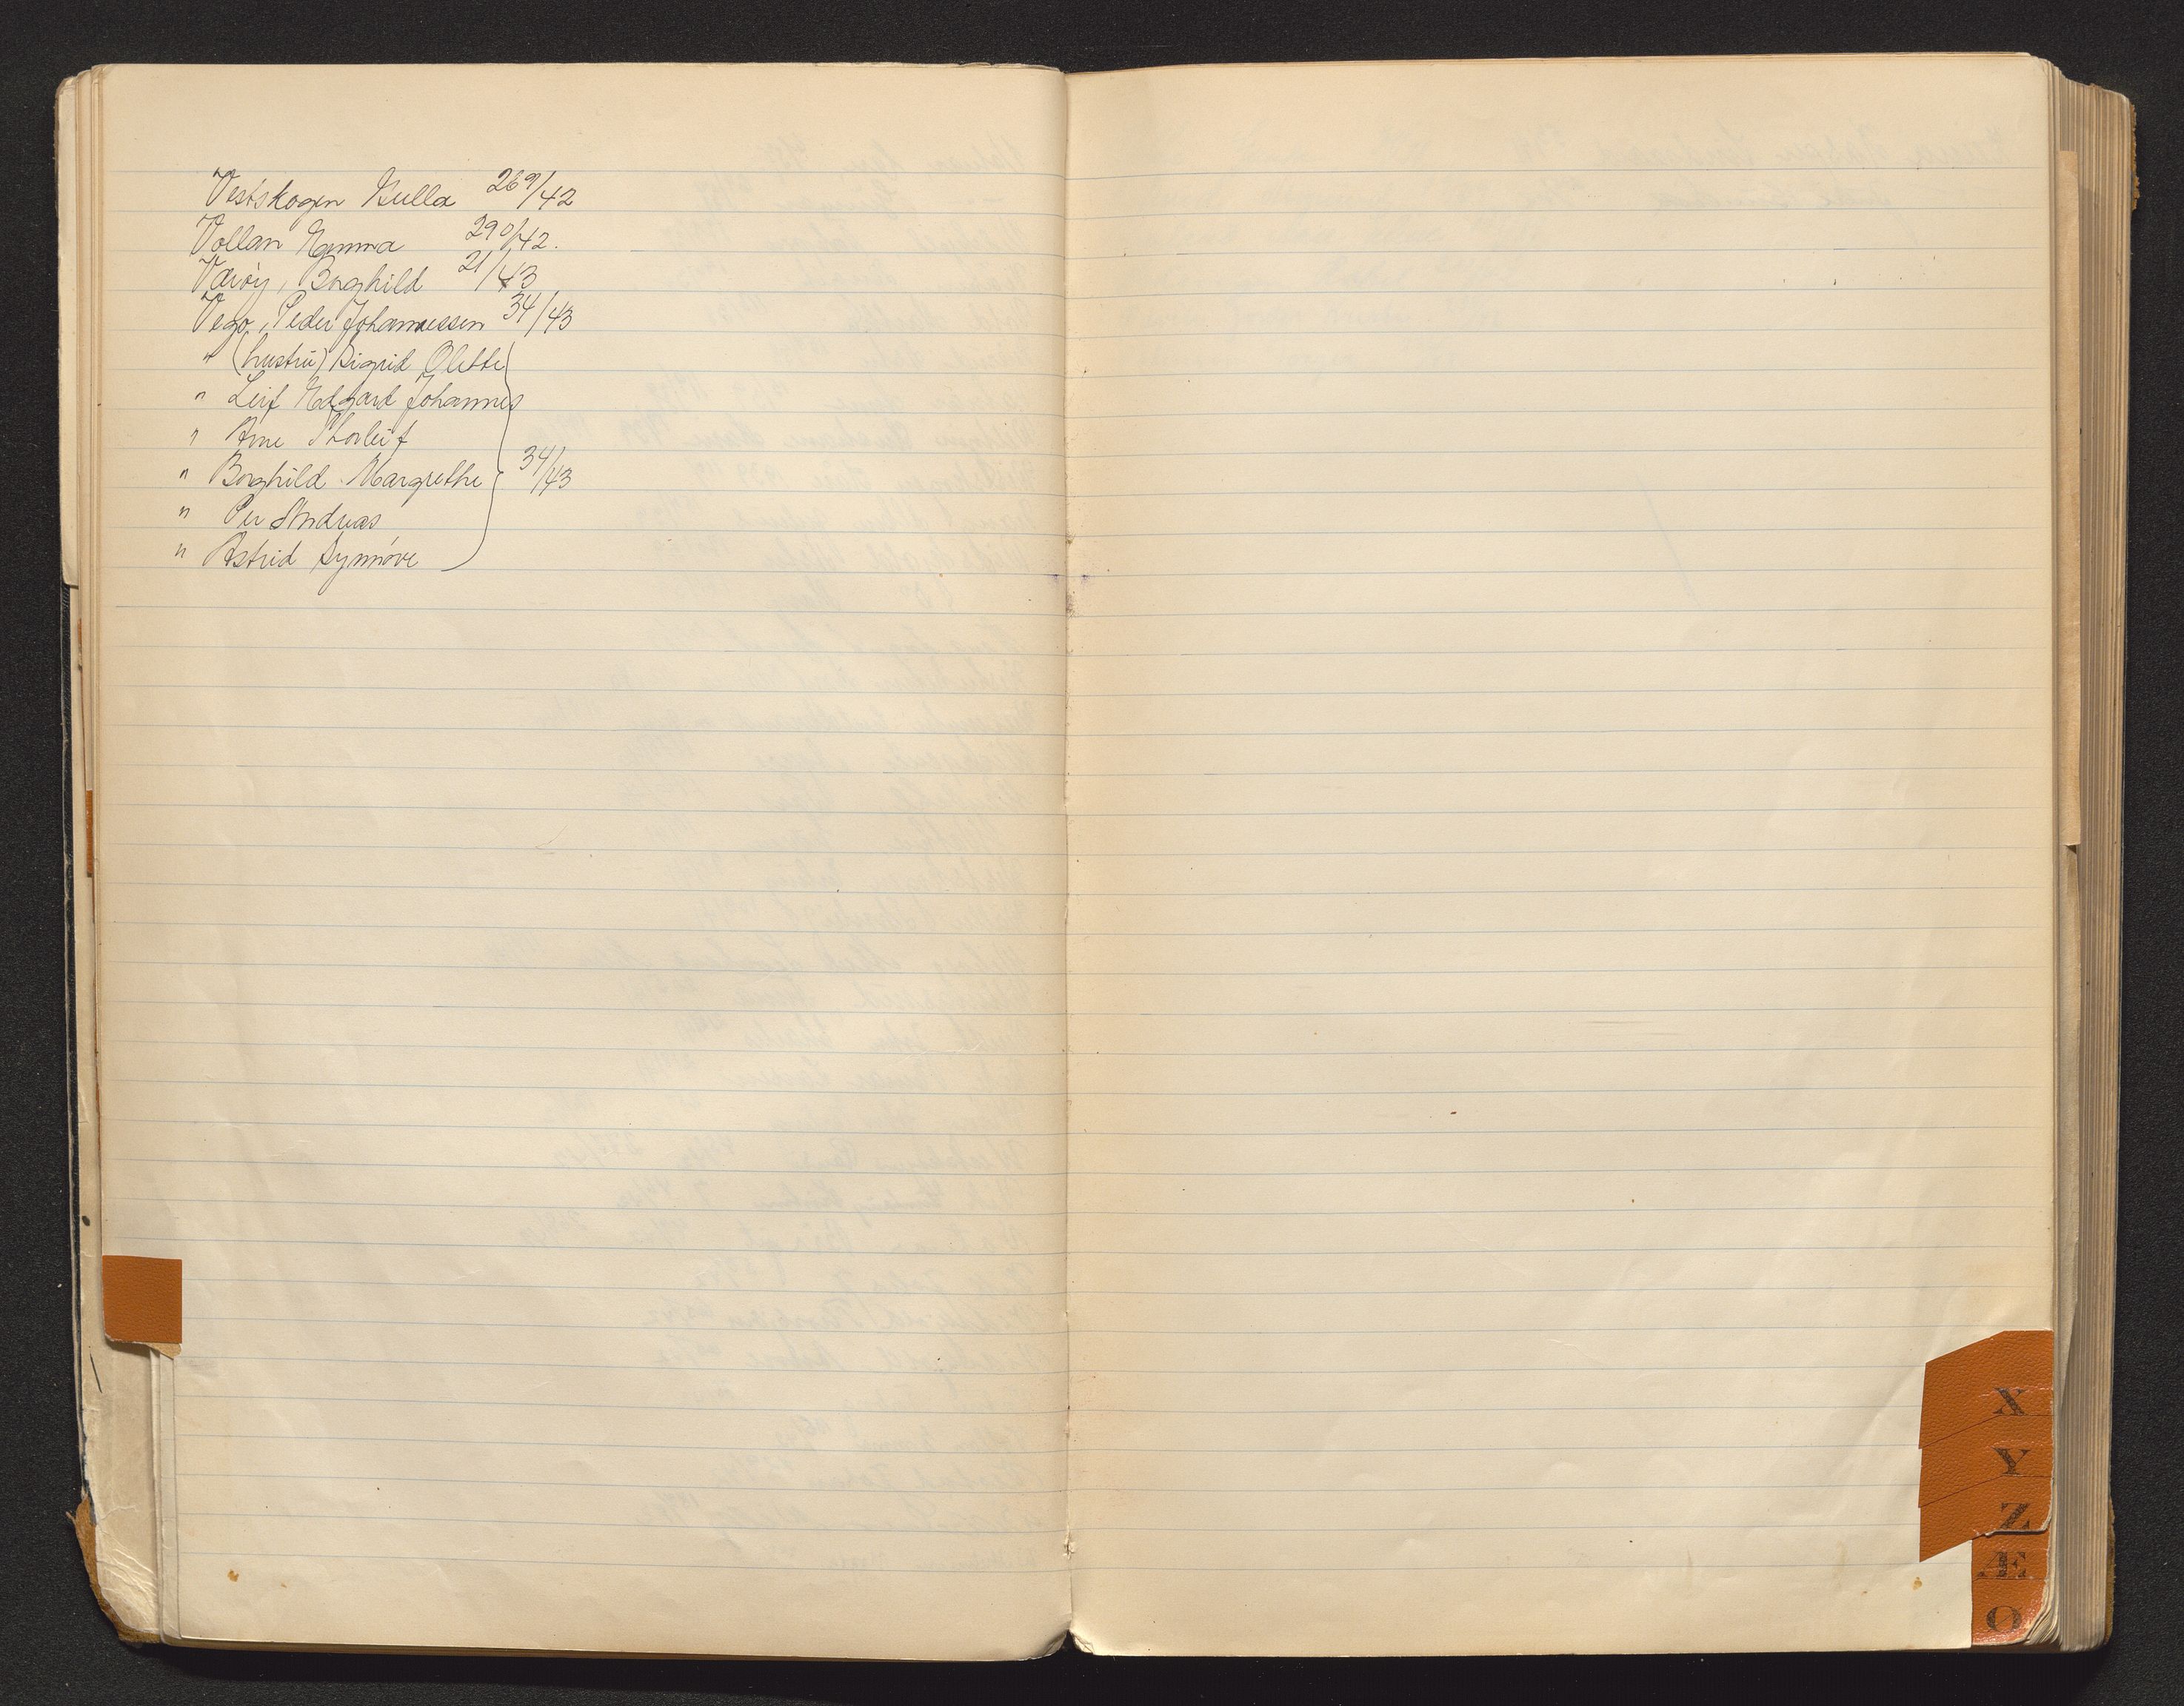 Vestskogen Gulla 269/42
Vollan Emma 290/42.
Værøy, Borghild 21/43
Vego, Peder Johannessen 34/43
" (hustru) Sigrid Olette
" Leif Edgard Johannes
" Arne Thorleif
" Borghild Margrethe 34/43
" Per Andreas
" Astrid Synnøve
X
Y
Z
Æ
Ø